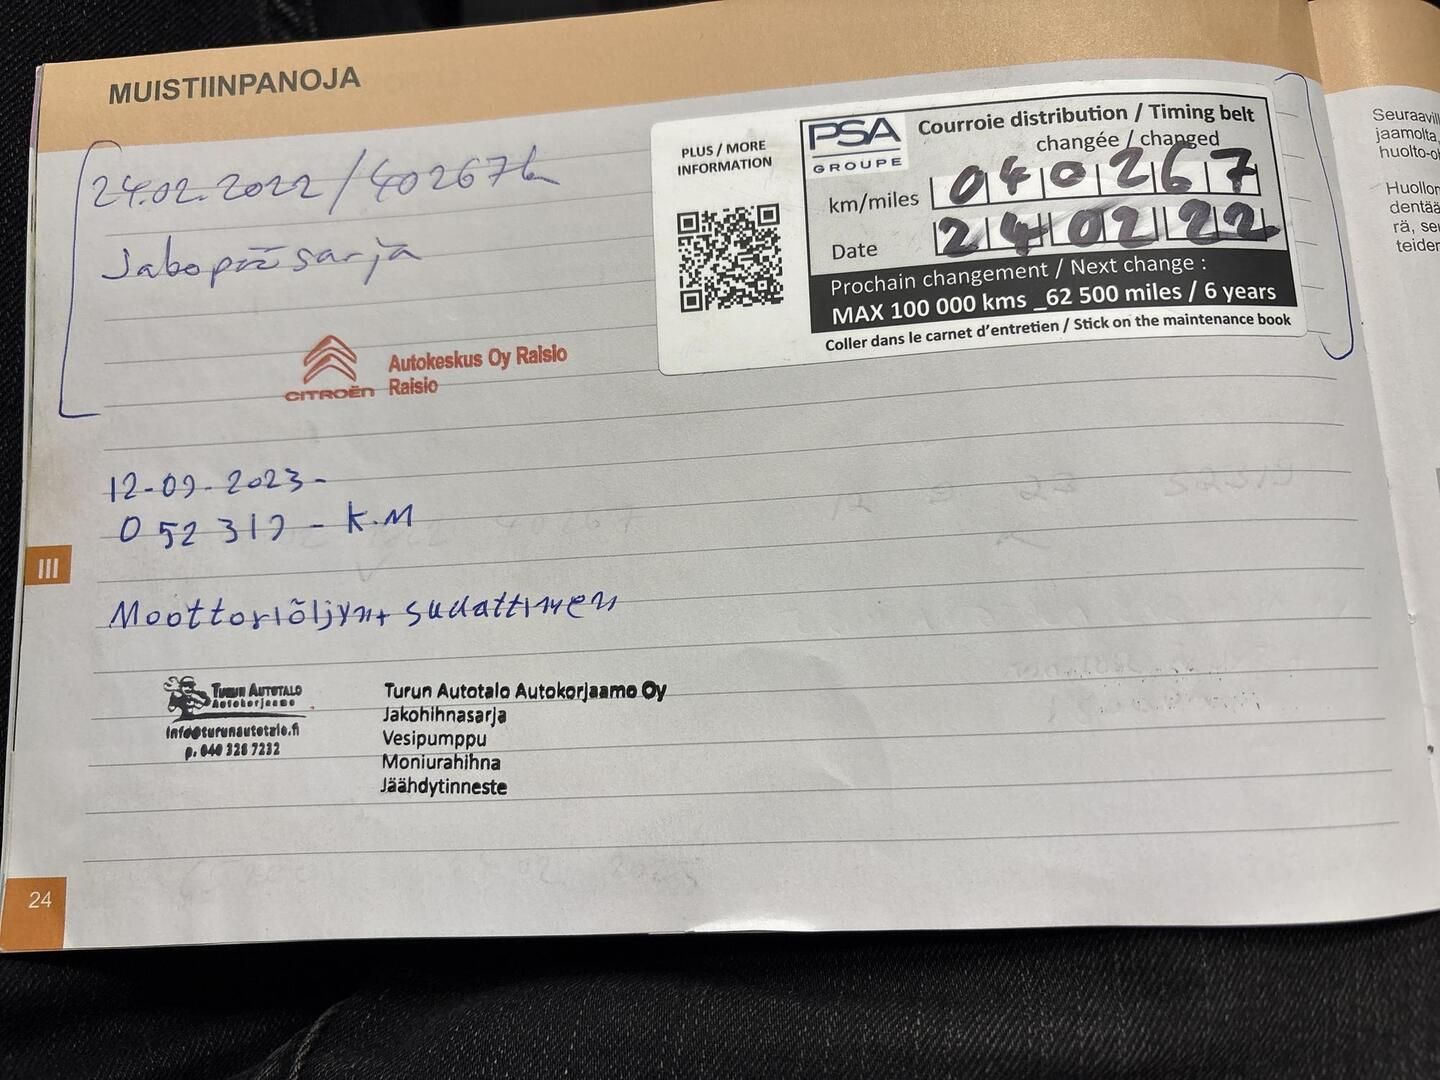 MUISTIINPANOJA
24.02.2022 / 40267k
Jakopääsarja
CITROËN
Autokeskus Oy Raisio
Raisio
PLUS / MORE
INFORMATION
PSA
GROUPE
Courroie distribution / Timing belt
changée / changed
km/miles 040267
Date 240222
Prochain changement / Next change :
MAX 100 000 kms _62 500 miles / 6 years
Coller dans le carnet d'entretien / Stick on the maintenance book
12-09-2023-
052319 - K.M
Moottoriöljyn+ sudattimen
TURUN AUTOTALO
Autokorjaamo
info@turunautotalo.fi
p. 040 326 7232
Turun Autotalo Autokorjaamo Oy
Jakohihnasarja
Vesipumppu
Moniurahihna
Jäähdytinneste
III
24
Seuraavil
jaamolta,
huolto-o
Huollon
dentää
rä, se
teiden